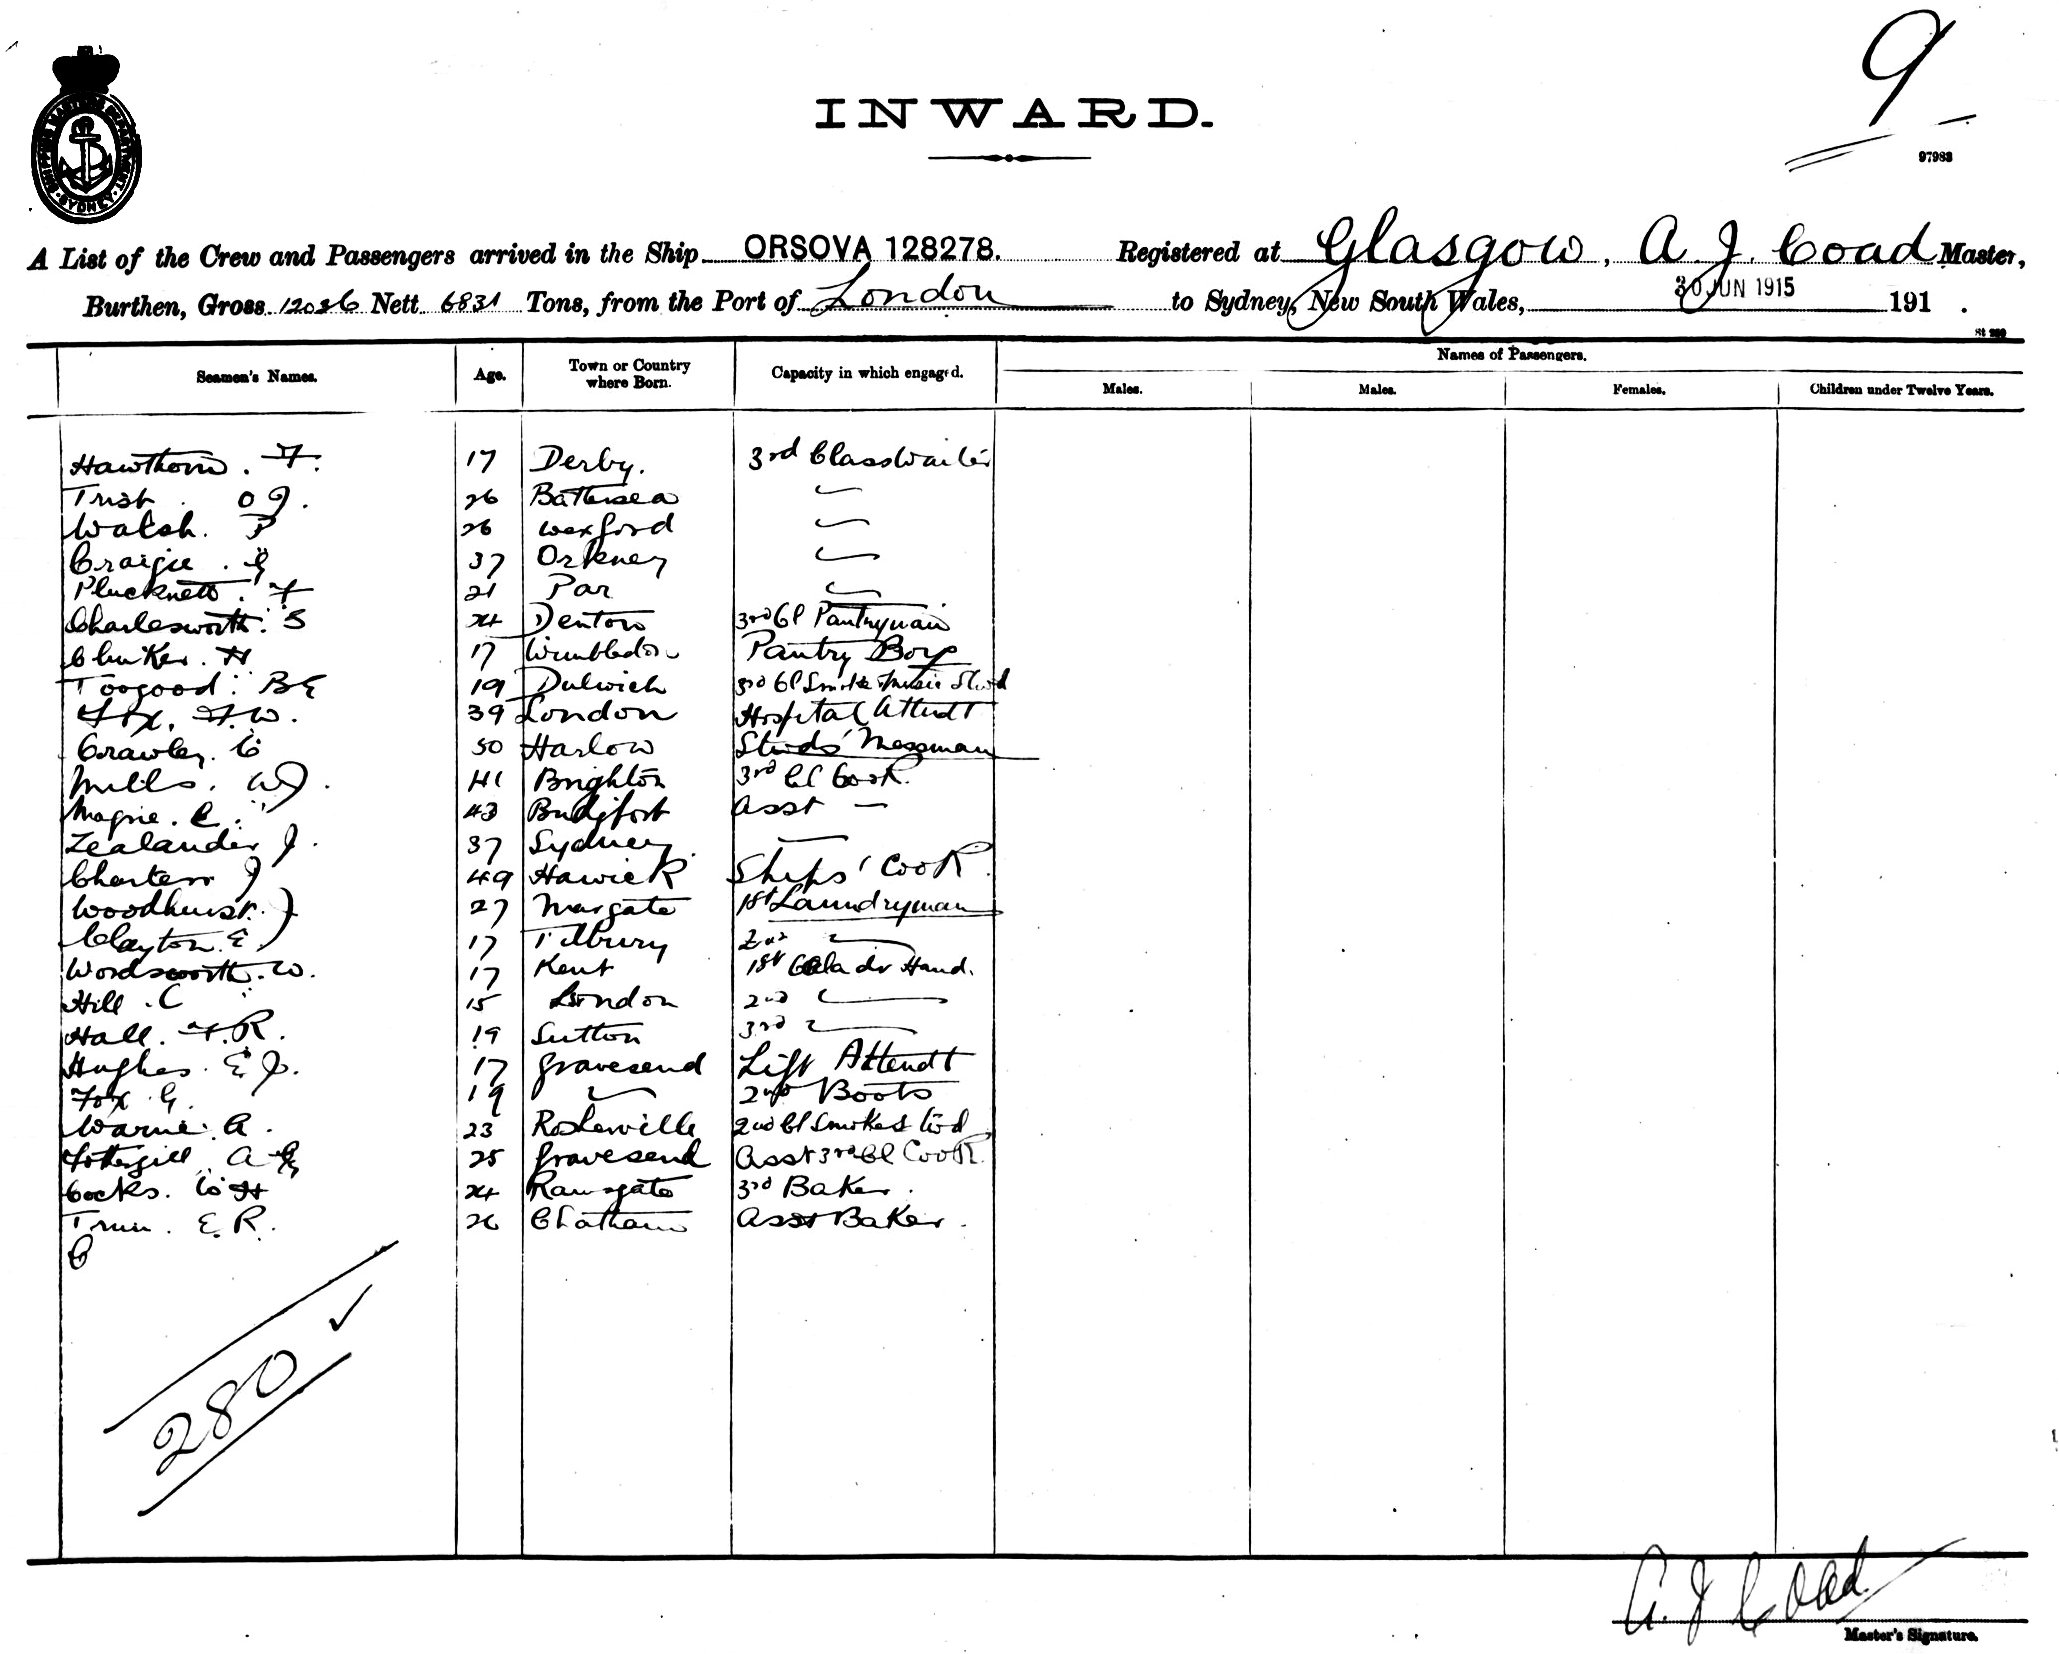 9
INWARD.
97983
SHIPPING MASTERS DEPARTMENT
SYDNEY
A List of the Crew and Passengers arrived in the Ship ORSOVA 128278. Registered at Glasgow, A. J. Coad Master,
Burthen, Gross 12036 Nett 6831 Tons, from the Port of London to Sydney, New South Wales, 30 JUN 1915 191 .
Seamen's Names. Age. Town or Country where Born. Capacity in which engaged. Names of Passengers.
Males. Males. Females. Children under Twelve Years.
Hawthorn. F. 17 Derby. 3rd Class Waiter
Trist O J. 26 Battersea
Walsh. P 26 Wexford
Craigie. G 37 Orkney
Plucknett. F 21 Par
Charlesworth. S 24 Denton 3rd Cl Pantryman
H 17 Wimbledon Pantry Boy
Toogood. B E 19 Dulwich 3rd Cl Smoke Music Stwd
Fox. F. W. 39 London Hospital Attendt
Crawley. C 50 Harlow Stwds' Messman
Mills. W J. 41 Brighton 3rd Cl Cook.
Magne. C. 43 asst —
Zealander J. 37 Sydney.
Charters J 49 Hawick Ships' Cook.
Woodhurst. J 27 Margate 1st Laundryman
Clayton. E 17 Tilbury 2nd
Wordsworth. W. 17 Kent 1st Hand.
Hill. C 15 London 2nd
Hall. F. R. 19 Sutton 3rd
Hughes. E J. 17 Gravesend Lift Attendt
Fox. G. 19 2nd Boots
Warne. A. 23 Rosherville 2nd Cl Smoke Stwd
Fothergill A G 25 Gravesend Asst 3rd Cl Cook.
Cocks. C H 24 Ramsgate 3rd Baker.
E. R. 26 Chatham Asst Baker.
C
280
A. J Coad
Master's Signature.